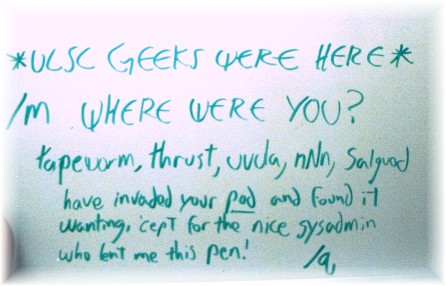 *UCSC GEEKS WERE HERE*
/m WHERE WERE YOU?
tapeworm, thrust, uvula, nNn, Salguod
have invaded your pod and found it
wanting, 'cept for the nice sysadmin
who lent me this pen! /a,